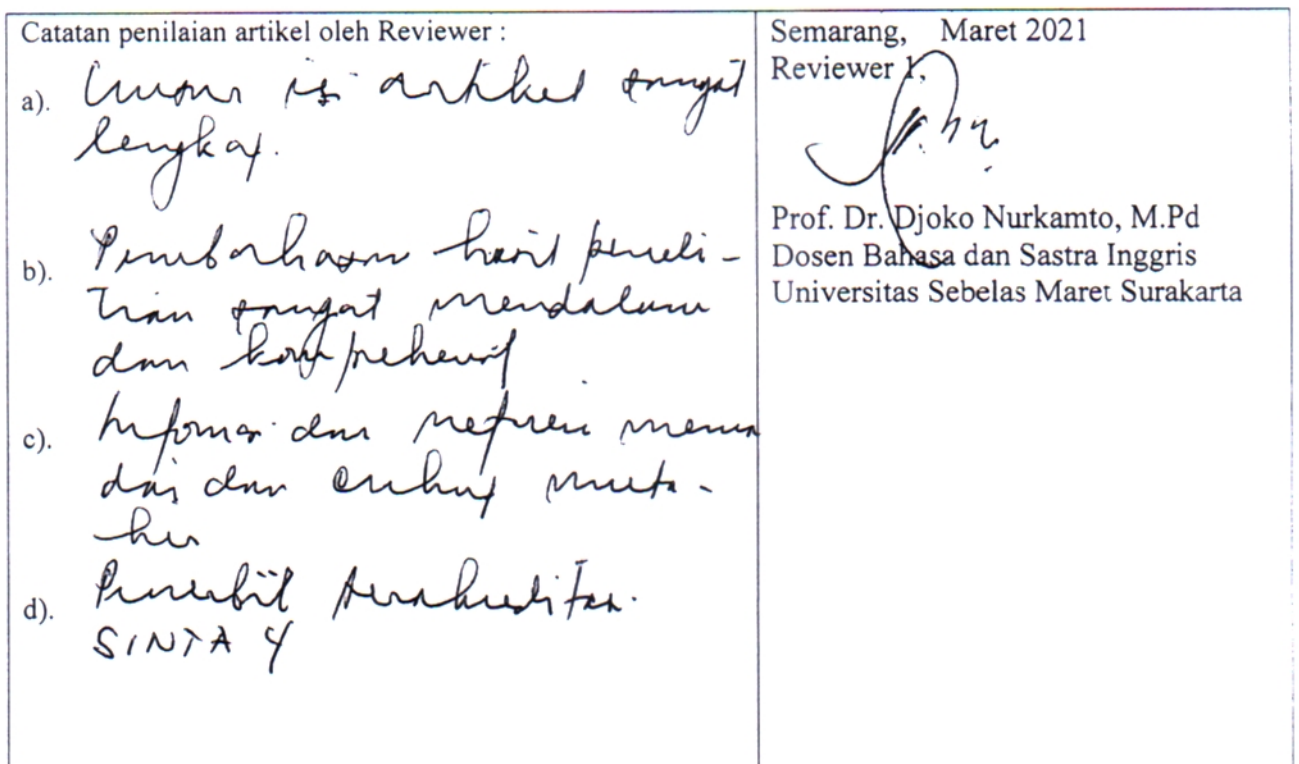 Catatan penilaian artikel oleh Reviewer :
a). Unsur isi artikel sangat
lengkap.
b). Pembahasan hasil peneli-
tian sangat mendalam
dan komprehensif
c). Informasi dan referensi mema
dai dan cukup muta-
hir
d). Penerbit terakreditasi
SINTA 4
Semarang, Maret 2021
Reviewer 1,
Prof. Dr. Djoko Nurkamto, M.Pd
Dosen Bahasa dan Sastra Inggris
Universitas Sebelas Maret Surakarta